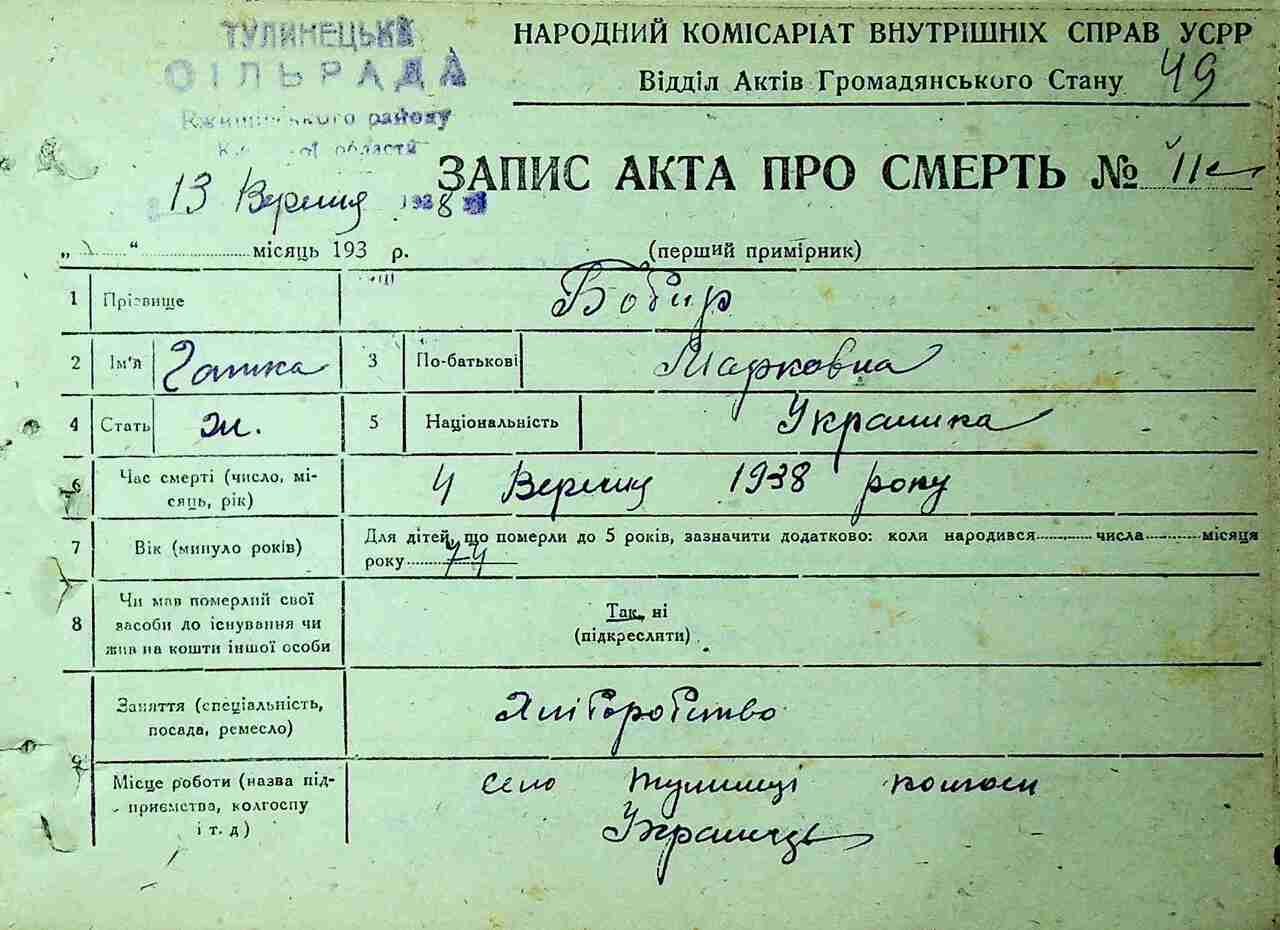 ТУЛИНЕЦЬКА
СІЛЬРАДА
Ржищівського району
К области
НАРОДНИЙ КОМІСАРІАТ ВНУТРІШНІХ СПРАВ УСРР
Відділ Актів Громадянського Стану 49
ЗАПИС АКТА ПРО СМЕРТЬ №
13 Вересня 1938
„ “ місяць 193 р. (перший примірник)
1 Прізвище Бобир
2 Ім'я Галька 3 По-батькові Марковна
4 Стать ж. 5 Національність Украінка
6 Час смерті (число, мі-
сяць, рік) 4 Вересня 1938 року
7 Вік (минуло років) Для дітей, що померли до 5 років, зазначити додатково: коли народився числа місяця
року 74
8 Чи мав померлий свої
засоби до існування чи
жив на кошти іншої особи
Так, ні
(підкреслити)
Заняття (спеціальність,
посада, ремесло) Хліборобство
9 Місце роботи (назва під-
приємства, колгоспу
і т. д)
село Тулинці колгосп